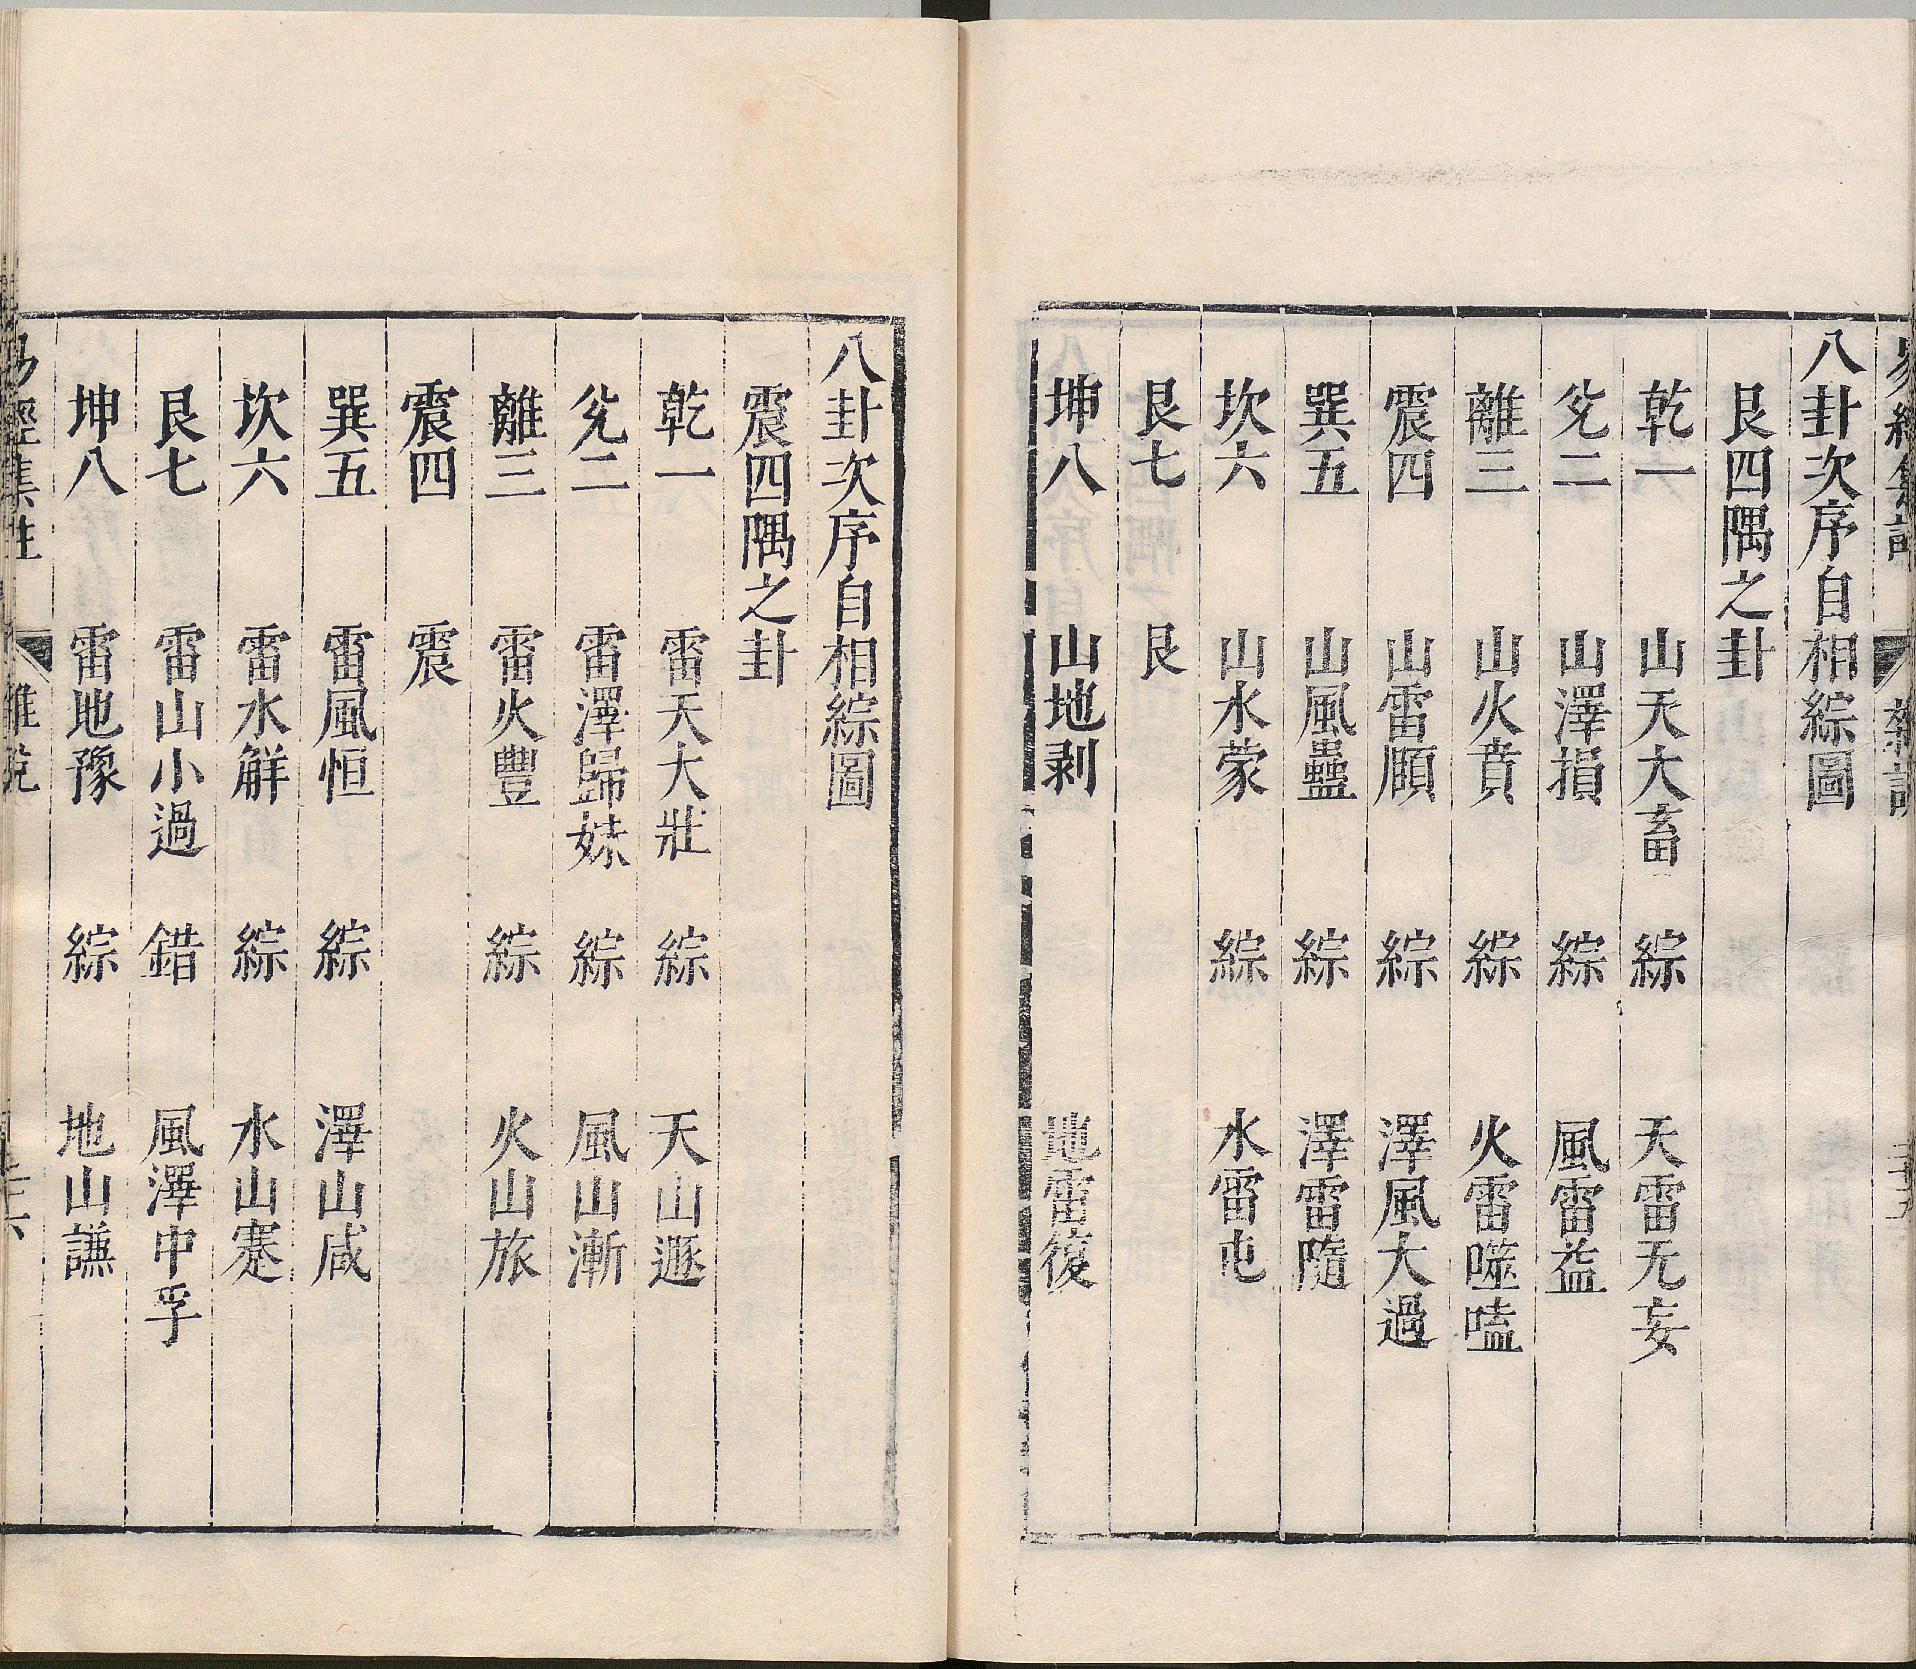 易經集註 雜說 三十五
八卦次序自相綜圖
艮四隅之卦
乾一 山天大畜 綜 天雷无妄
兊二 山澤損 綜 風雷益
離三 山火賁 綜 火雷噬嗑
震四 山雷頤 綜 澤風大過
巽五 山風蠱 綜 澤雷隨
坎六 山水蒙 綜 水雷屯
艮七 艮
坤八 山地剥 地雷復
八卦次序自相綜圖
震四隅之卦
乾一 雷天大壯 綜 天山遯
兊二 雷澤歸妹 綜 風山漸
離三 雷火豐 綜 火山旅
震四 震
巽五 雷風恒 綜 澤山咸
坎六 雷水解 綜 水山蹇
艮七 雷山小過 錯 風澤中孚
坤八 雷地豫 綜 地山謙
易經集註 雜說 三十六